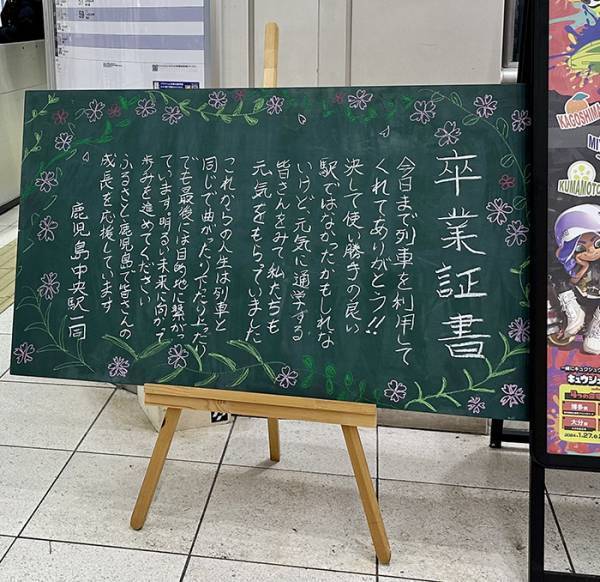 卒業証書
今日まで列車を利用して
くれてありがとう!!
決して使い勝手の良い
駅ではなかったかもしれな
いけど、元気に通学する
皆さんをみて私たちも
元気をもらっていました
これからの人生は列車と
同じで曲がったり下がったり
でも最後には目的地に繋がっ
ています。明るい未来に向かって
歩みを進めてください
ふるさと鹿児島で皆さんの
成長を応援しています
鹿児島中央駅一同
KAGOSHIMA
KUMAMOTO
博多
大分